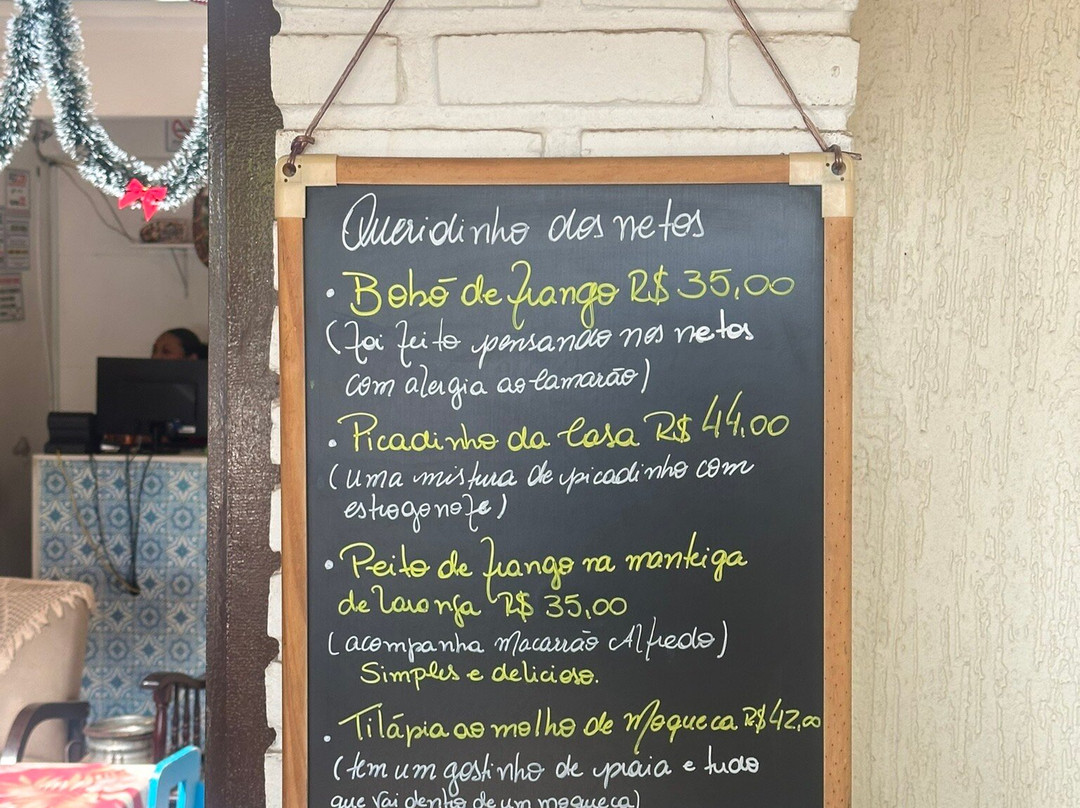 Queridinho dos netos
• Bobó de frango R$ 35,00
(foi feito pensando nos netos
com alergia ao camarão)
• Picadinho da Casa R$ 44,00
(uma mistura de picadinho com
estrogonofe)
• Peito de frango na manteiga
de laranja R$ 35,00
(acompanha Macarrão Alfredo)
Simples e delicioso.
• Tilápia ao molho de Moqueca R$ 42,00
(tem um gostinho de praia e tudo
que vai dentro de um moqueca)